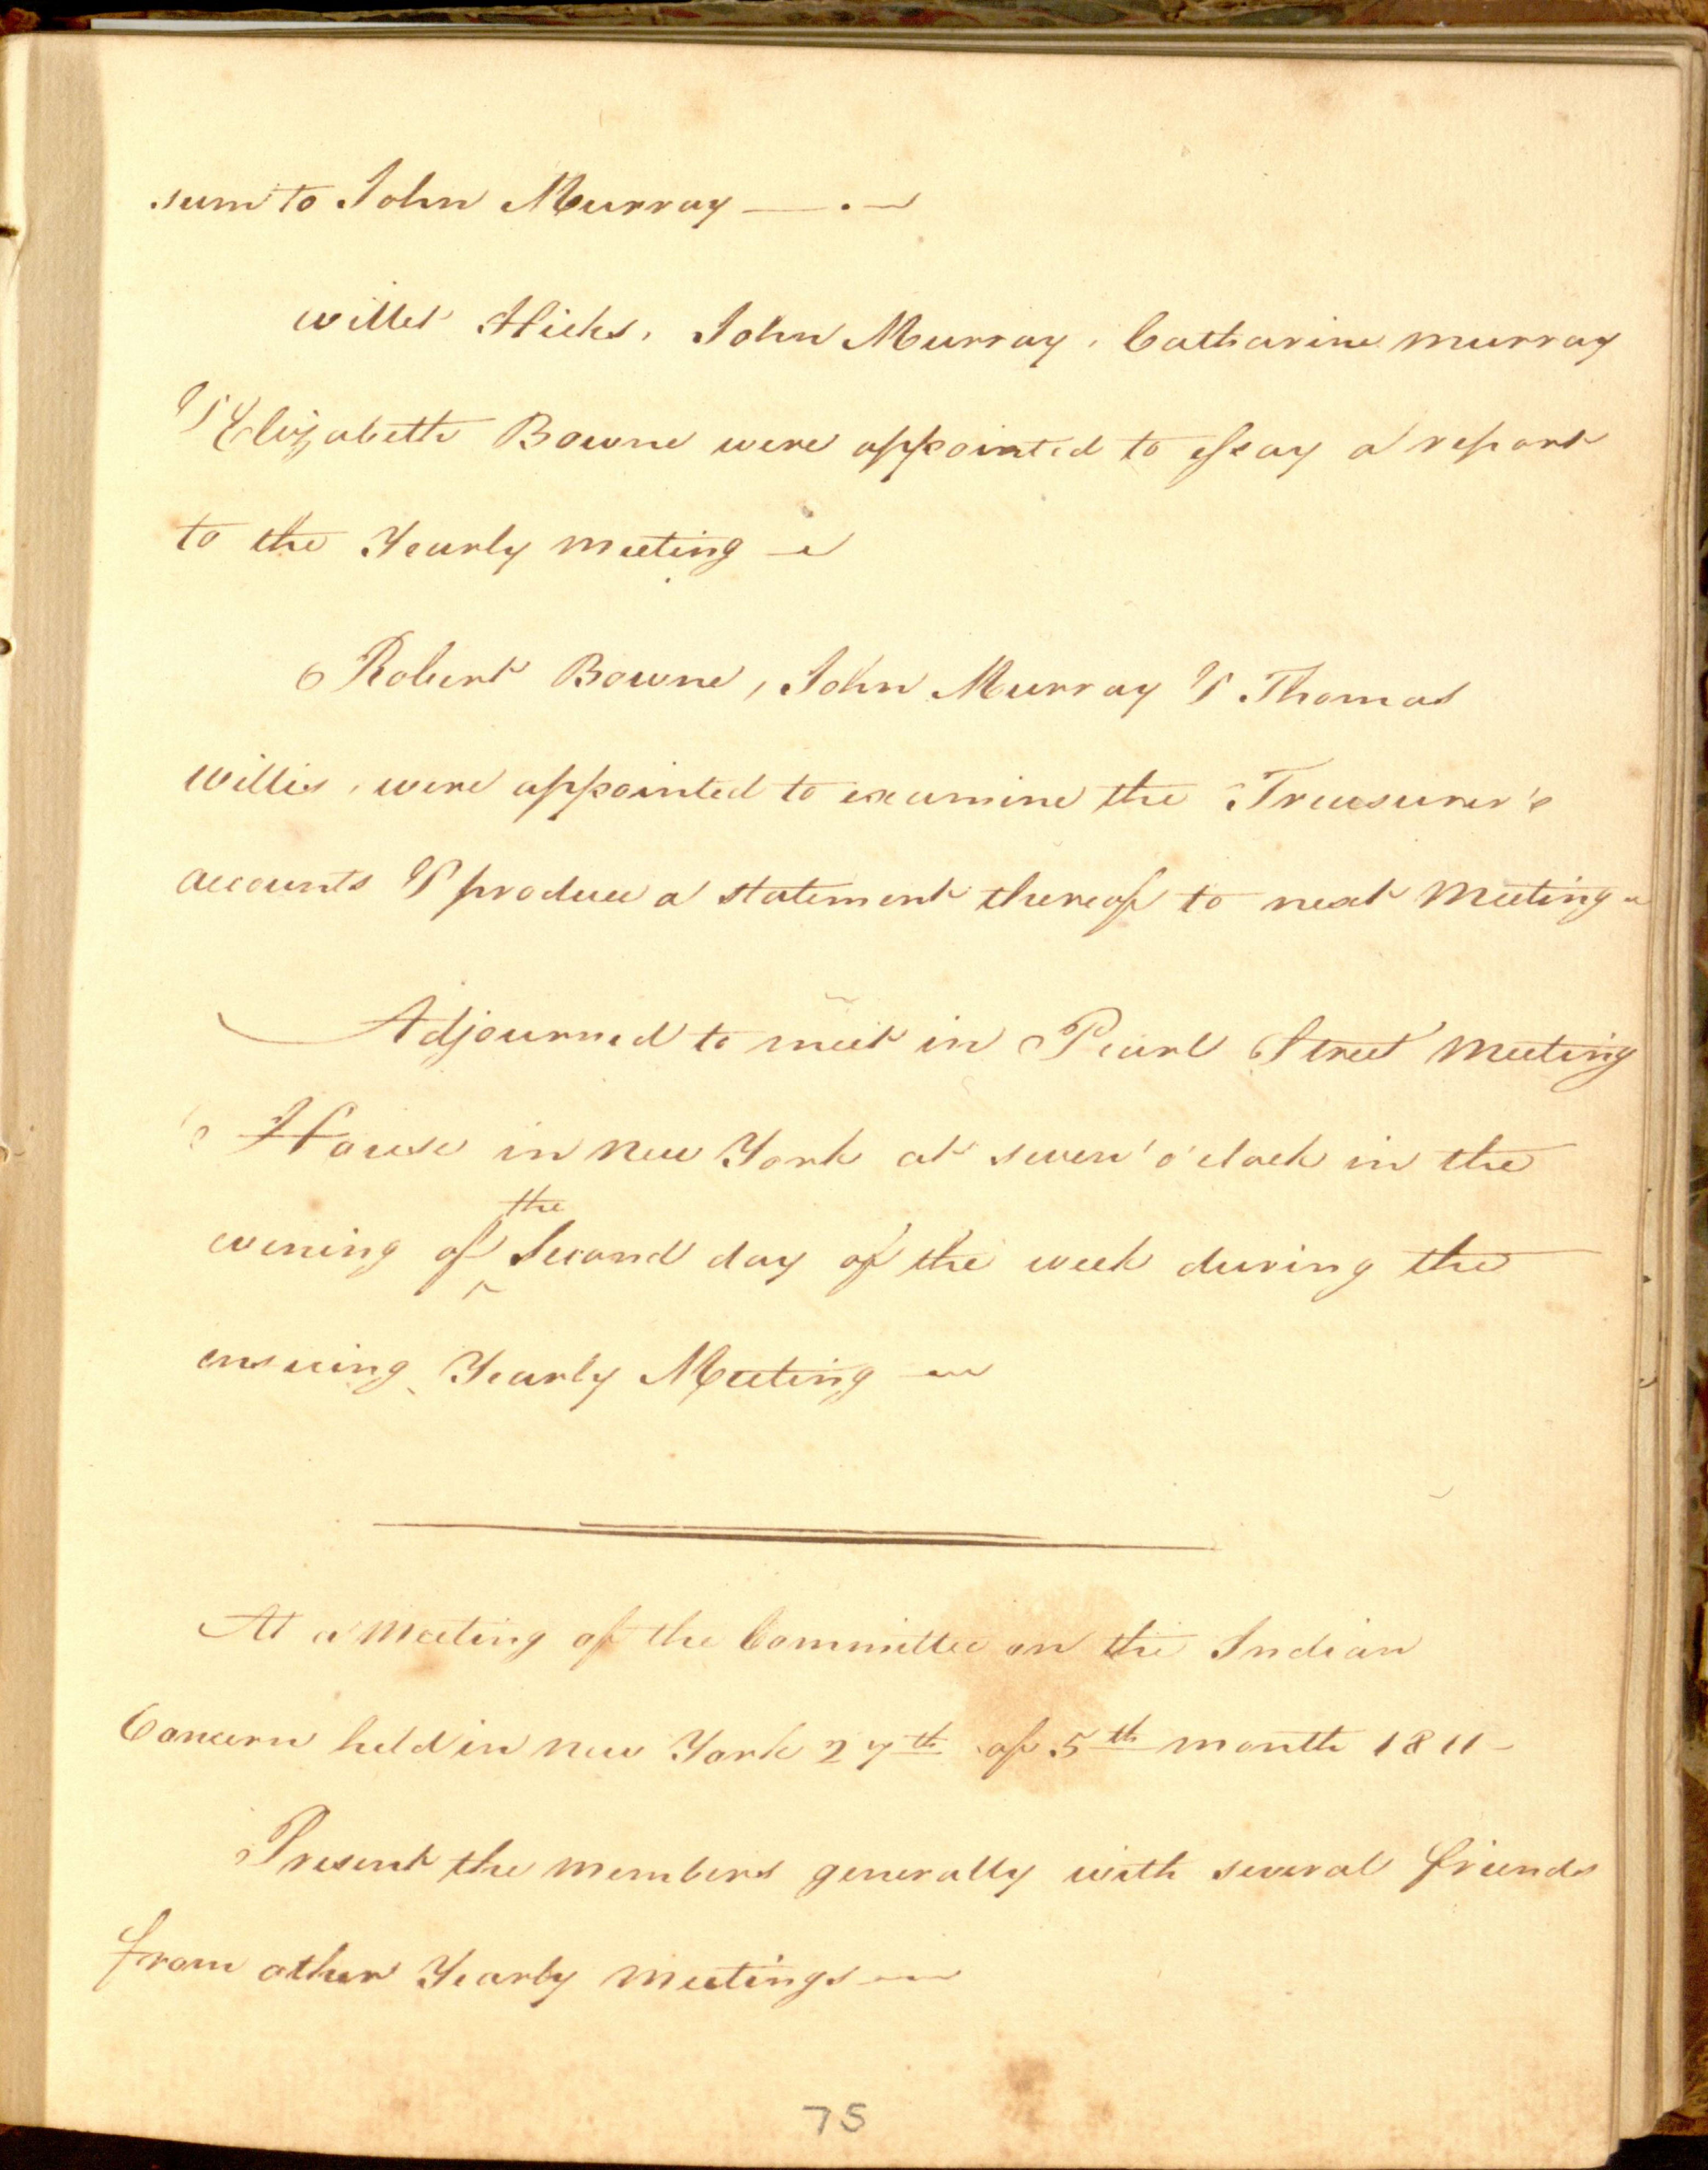 sum to John Murray —.—
Willet Hicks, John Murray, Catharine Murray
& Elizabeth Bowne were appointed to essay a report
to the Yearly Meeting —
Robert Bowne, John Murray & Thomas
Willis, were appointed to examine the Treasurer's
accounts & produce a statement thereof to next Meeting –
Adjourned to meet in Pearl Street Meeting
House in New York at seven o'clock in the
the
evening of ^ Second day of the week during the
ensuing Yearly Meeting —
At a Meeting of the Committee on the Indian
Concern held in New York 27th of 5th month 1811 –
Present the members generally with several friends
from other Yearly Meetings —
75